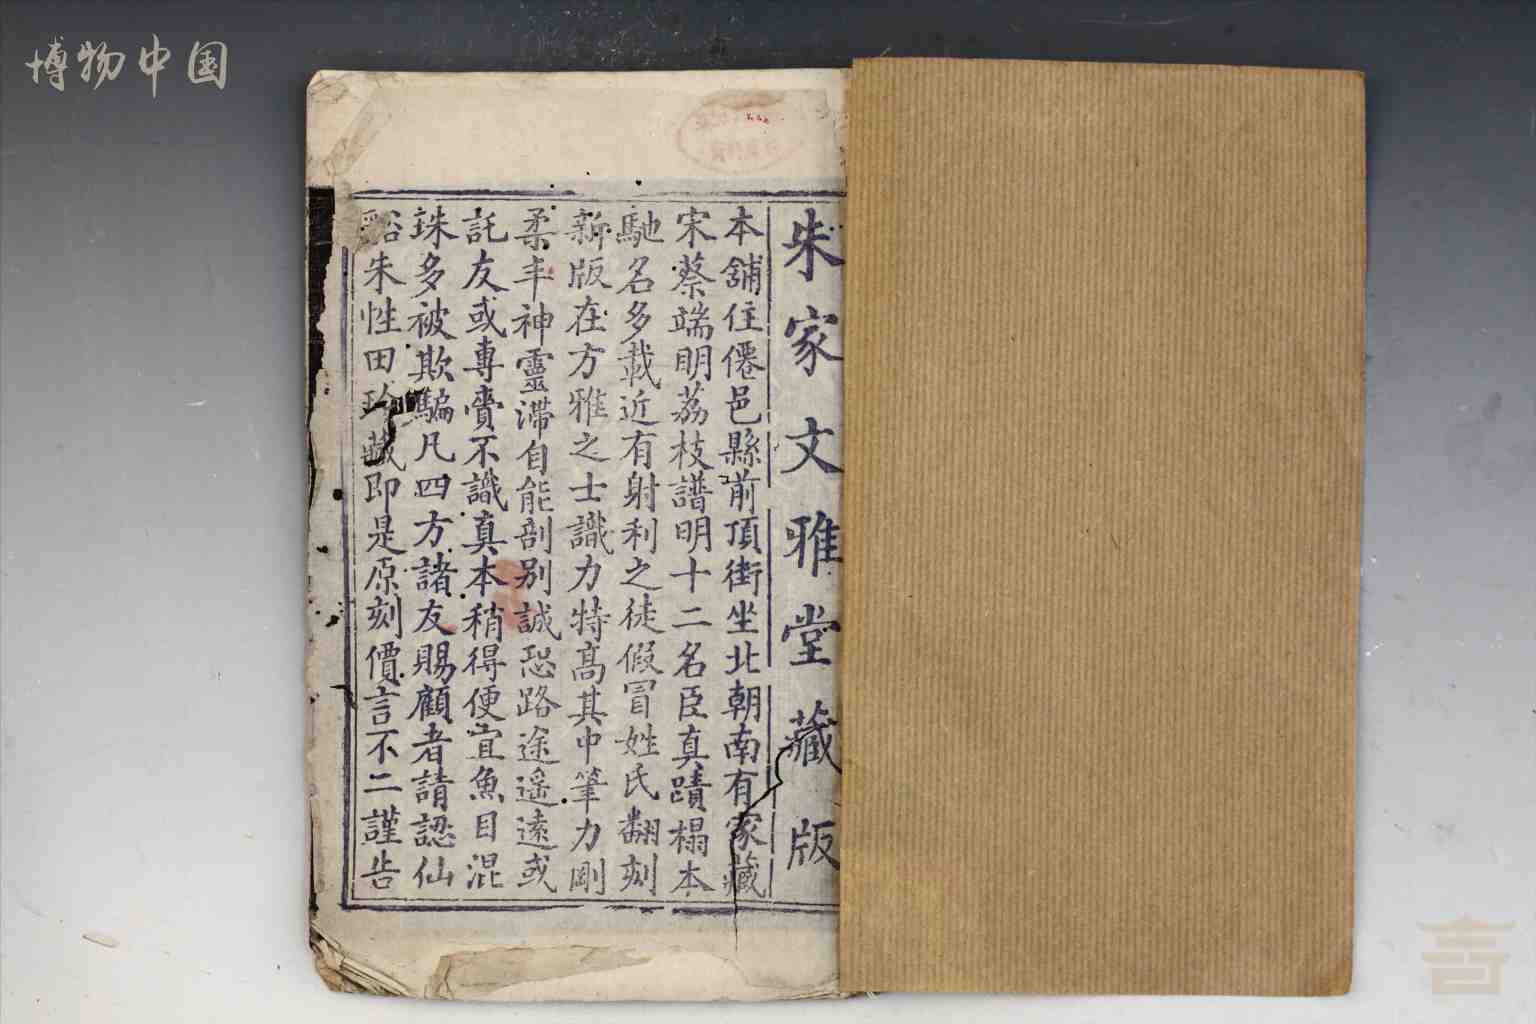 博物中国
朱家文雅堂藏版
本舖住僊邑縣前頂街坐北朝南有家藏
宋蔡端明荔枝譜明十二名臣真蹟榻本
馳名多載近有射利之徒假冒姓氏翻刻
新版在方雅之士識力特高其中筆力剛
柔丰神靈滯自能剖别誠恐路途遥遠或
託友或專賫不識真本稍得便宜魚目混
珠多被欺騙凡四方諸友賜顧者請認仙
谿朱性田珍藏即是原刻價言不二謹告